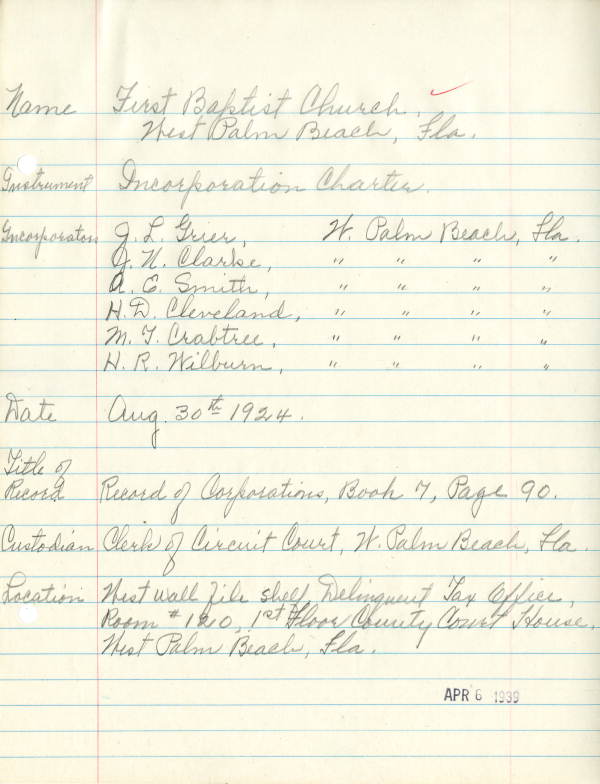 Name First Baptist Church,
West Palm Beach, Fla.
Instrument Incorporation Charter.
Incorporators J. L. Grier, W. Palm Beach, Fla.
J. N. Clarke, " " " "
A. E. Smith, " " " "
H. D. Cleveland, " " " "
M. T. Crabtree, " " " "
H. R. Wilburn, " " " "
Date Aug. 30th 1924.
Title of
Record Record of Corporations, Book 7, Page 90.
Custodian Clerk of Circuit Court, W. Palm Beach, Fla.
Location West wall file shelf, Delinquent Tax Office,
Room # 120, 1st Floor County Court House.
West Palm Beach, Fla.
APR 6 1939